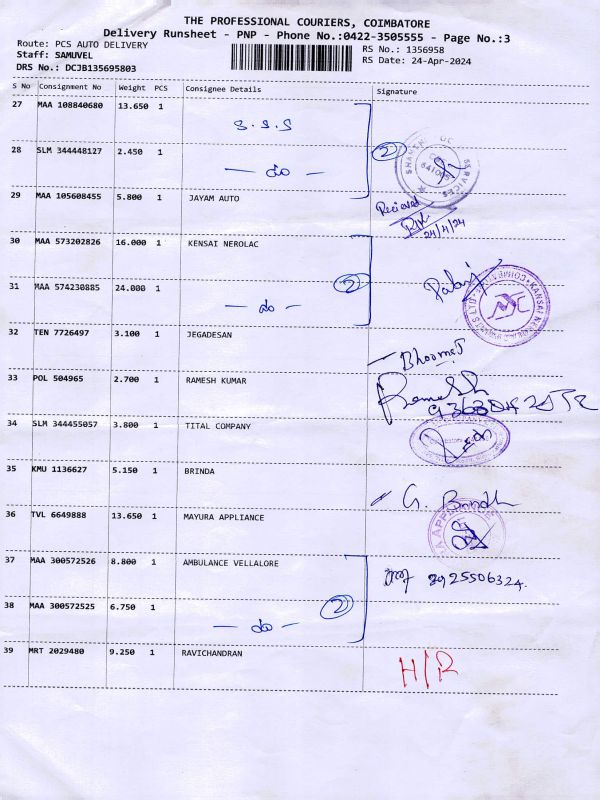 THE PROFESSIONAL COURIERS, COIMBATORE
Delivery Runsheet - PNP - Phone No.:0422-3505555 - Page No.:3
Route: PCS AUTO DELIVERY RS No.: 1356958
Staff: SAMUVEL RS Date: 24-Apr-2024
DRS No.: DCJB135695803
S No Consignment No Weight PCS Consignee Details Signature
27 MAA 108840680 13.650 1 S.S.S
28 SLM 344448127 2.450 1 2
29 MAA 105608455 5.800 1 JAYAM AUTO Recieved
24/4/24
30 MAA 573202826 16.000 1 KENSAI NEROLAC
31 MAA 574230885 24.000 1 2
32 TEN 7726497 3.100 1 JEGADESAN
33 POL 504965 2.700 1 RAMESH KUMAR Ramesh
34 SLM 344455057 3.800 1 TITAL COMPANY
35 KMU 1136627 5.150 1 BRINDA G. Brindh
36 TVL 6649888 13.650 1 MAYURA APPLIANCE
37 MAA 300572526 8.800 1 AMBULANCE VELLALORE 8925506324.
38 MAA 300572525 6.750 1 2
39 MRT 2029480 9.250 1 RAVICHANDRAN H/R